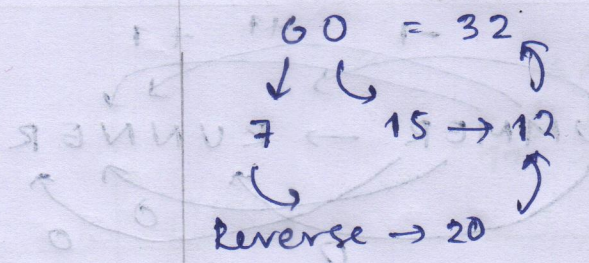 GO = 32
7 15 → 12
Reverse → 20